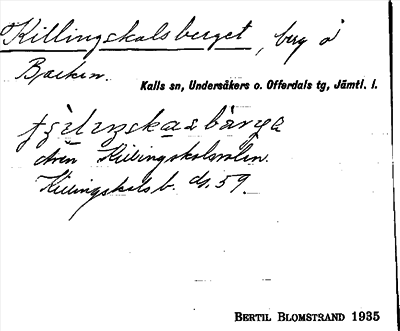 Killingskalsberget, berg å
Backen.
Kalls sn, Undersåkers o. Offerdals tg, Jämtl. l.
även Killingskalsvolen.
Killingskalsb. ds. 59.
BERTIL BLOMSTRAND 1935